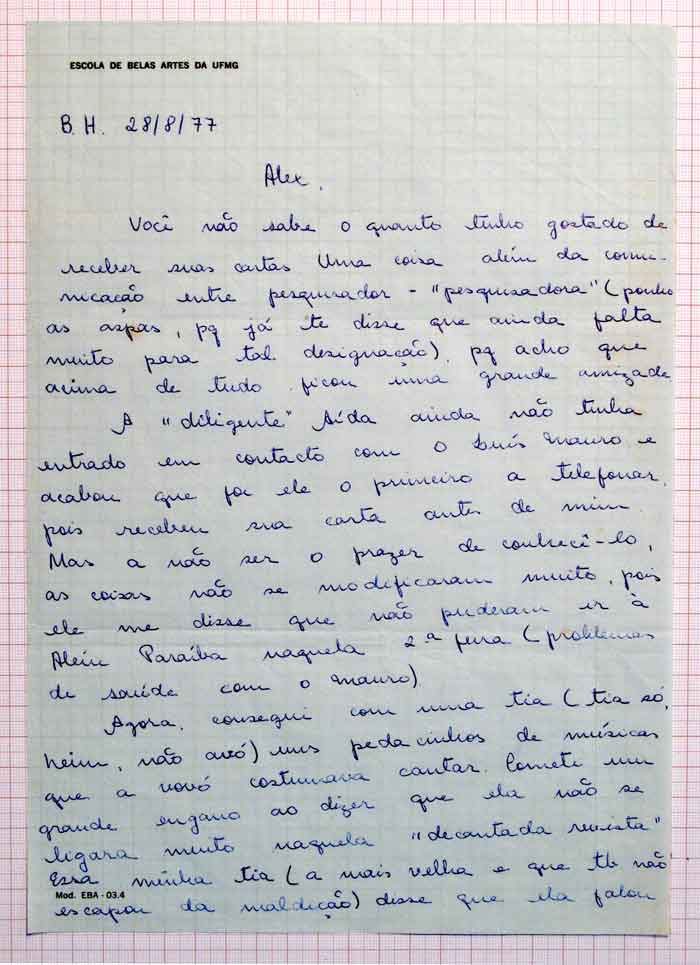 ESCOLA DE BELAS ARTES DA UFMG
B. H. 28/8/77
Alex,
Você não sabe o quanto tenho gostado de
receber suas cartas Uma coisa além da comu-
nicação entre pesquisador - "pesquisadora" (ponho
as aspas, pq já te disse que ainda falta
muito para tal designação), pq acho que
acima de tudo ficou uma grande amizade
A "diligente" Aída ainda não tinha
entrado em contacto com o Luís Mauro e
acabou que foi ele o primeiro a telefonar,
pois recebeu sua carta antes de mim.
Mas a não ser o prazer de conhecê-lo,
as coisas não se modificaram muito, pois
ele me disse que não puderam ir à
Além Paraíba naquela 2.ª feira (problemas
de saúde com o Mauro)
Agora, consegui com uma tia (tia só,
heim, não avó) uns pedacinhos de músicas
que a vovó costumava cantar. Cometi um
grande engano ao dizer que ela não se
ligara muito naquela "decantada revista"
Essa minha tia (a mais velha e que tb não
Mod. EBA - 03.4
escapou da maldição) disse que ela falou